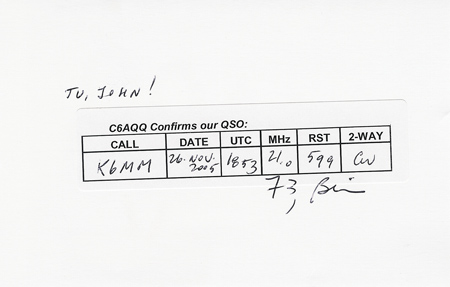 TU, JOHN!
C6AQQ Confirms our QSO:
CALL DATE UTC MHz RST 2-WAY
K6MM 26-NOV-2005 1853 21.0 599 CW
73,